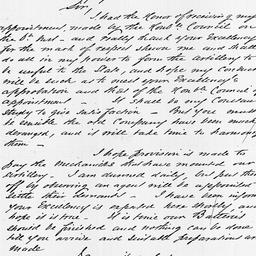 Sir,
I had the Honor of receiving my
appointment, made by the Honble Council on
the 1st Inst - and really thank your Excellency
for the mark of respect shewn me and shall
do all in my power to form the artillery to
be useful to the State, and hope my Conduct
will be such as to meet your Excellency's
approbation and that of the Honble Council of
appointment - It shall be my Constant
Study to give satisfaction - But you must
be the old Company have been much
deranged, and it will take time to harmonize
them -
I hope provision is made to
pay the Mechanics that have mounted our
artillery. I am dunned daily but put them
off by observing an agent will be appointed to
settle their demands - I have been informed
your Excellency is expected here shortly, and
hope it is true - It is time our Batteries
should be finished and nothing can be done
till you arrive and suitable preparations are
made